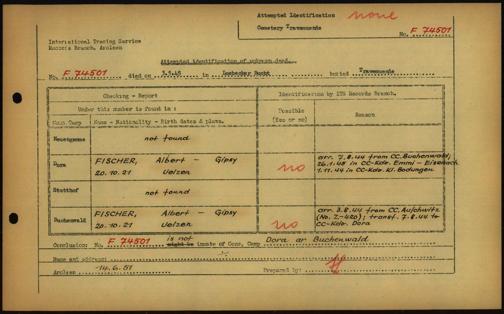 Attempted Identification none
Cemetery Travemuende
No. F 74501
International Tracing Service
Records Branch, Arolsen
Attempted identification of unknown dead.
No. F 74501 died on 3.5.45 in Luebecker Bucht buried Travemuende
Checking - Report
Identification by ITS Records Branch.
Under this number is found in :
Possible
(Yes or no)
Reason
Conc. Camp Name - Nationality - Birth dates & place.
Neuengamme not found
Dora FISCHER, Albert - Gipsy
20.10.21 Uelzen
no
arr. 7.8.44 from CC. Buchenwald;
26.1.45 in CC-Kdr. Emmi - Eisenach
1.11.44 in CC-Kdr. Kl. Bodungen.
Stutthof not found
Buchenwald FISCHER, Albert - Gipsy
20.10.21 Uelzen
no
arr. 3.8.44 from CC. Auschwitz
(No. Z-420); transf. 7.8.44 to
CC-Kdr. Dora
is not
Conclusion: No. F 74501 might be inmate of Conc. Camp Dora or Buchenwald
Name and address:
Arolsen 14.6.51 Prepared by: